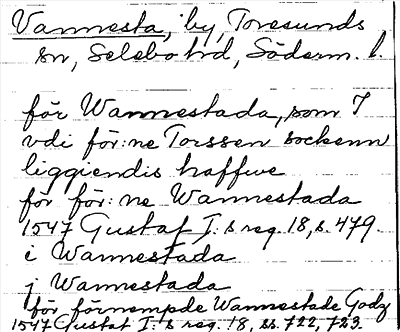 Vannesta, by, Toresunds
sn, Selebo hd, Söderm. l.
för Wannestada, som I
vdi för:ne Torssen sockenn
liggiendis haffwe
för för:ne Wannestada
1547 Gustaf I:s reg. 18, s. 479.
i Wannestada
j Wannestada
för förnempde Wannestade Godz
1547 Gustaf I:s reg. 18, ss. 722, 723.